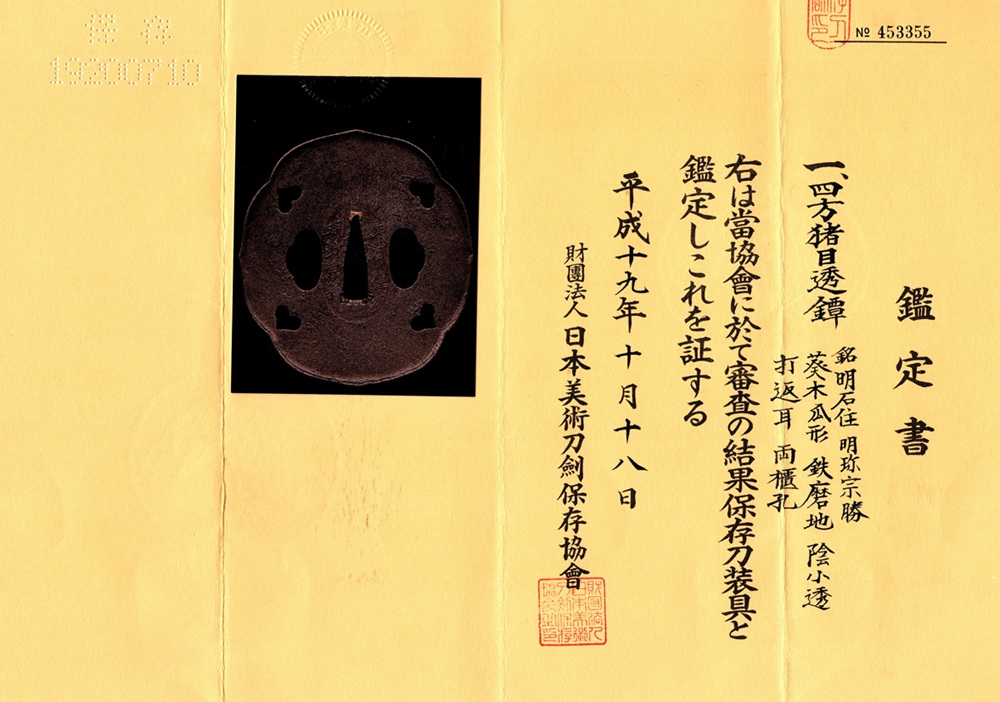 № 453355
鑑定書
一、四方猪目透鐔
銘 明石住 明珎宗勝
葵木瓜形 鉄磨地 陰小透
打返耳 両櫃孔
右は當協會に於て審査の結果保存刀装具と
鑑定しこれを証する
平成十九年十月十八日
財團法人 日本美術刀劍保存協會
保存
19200710